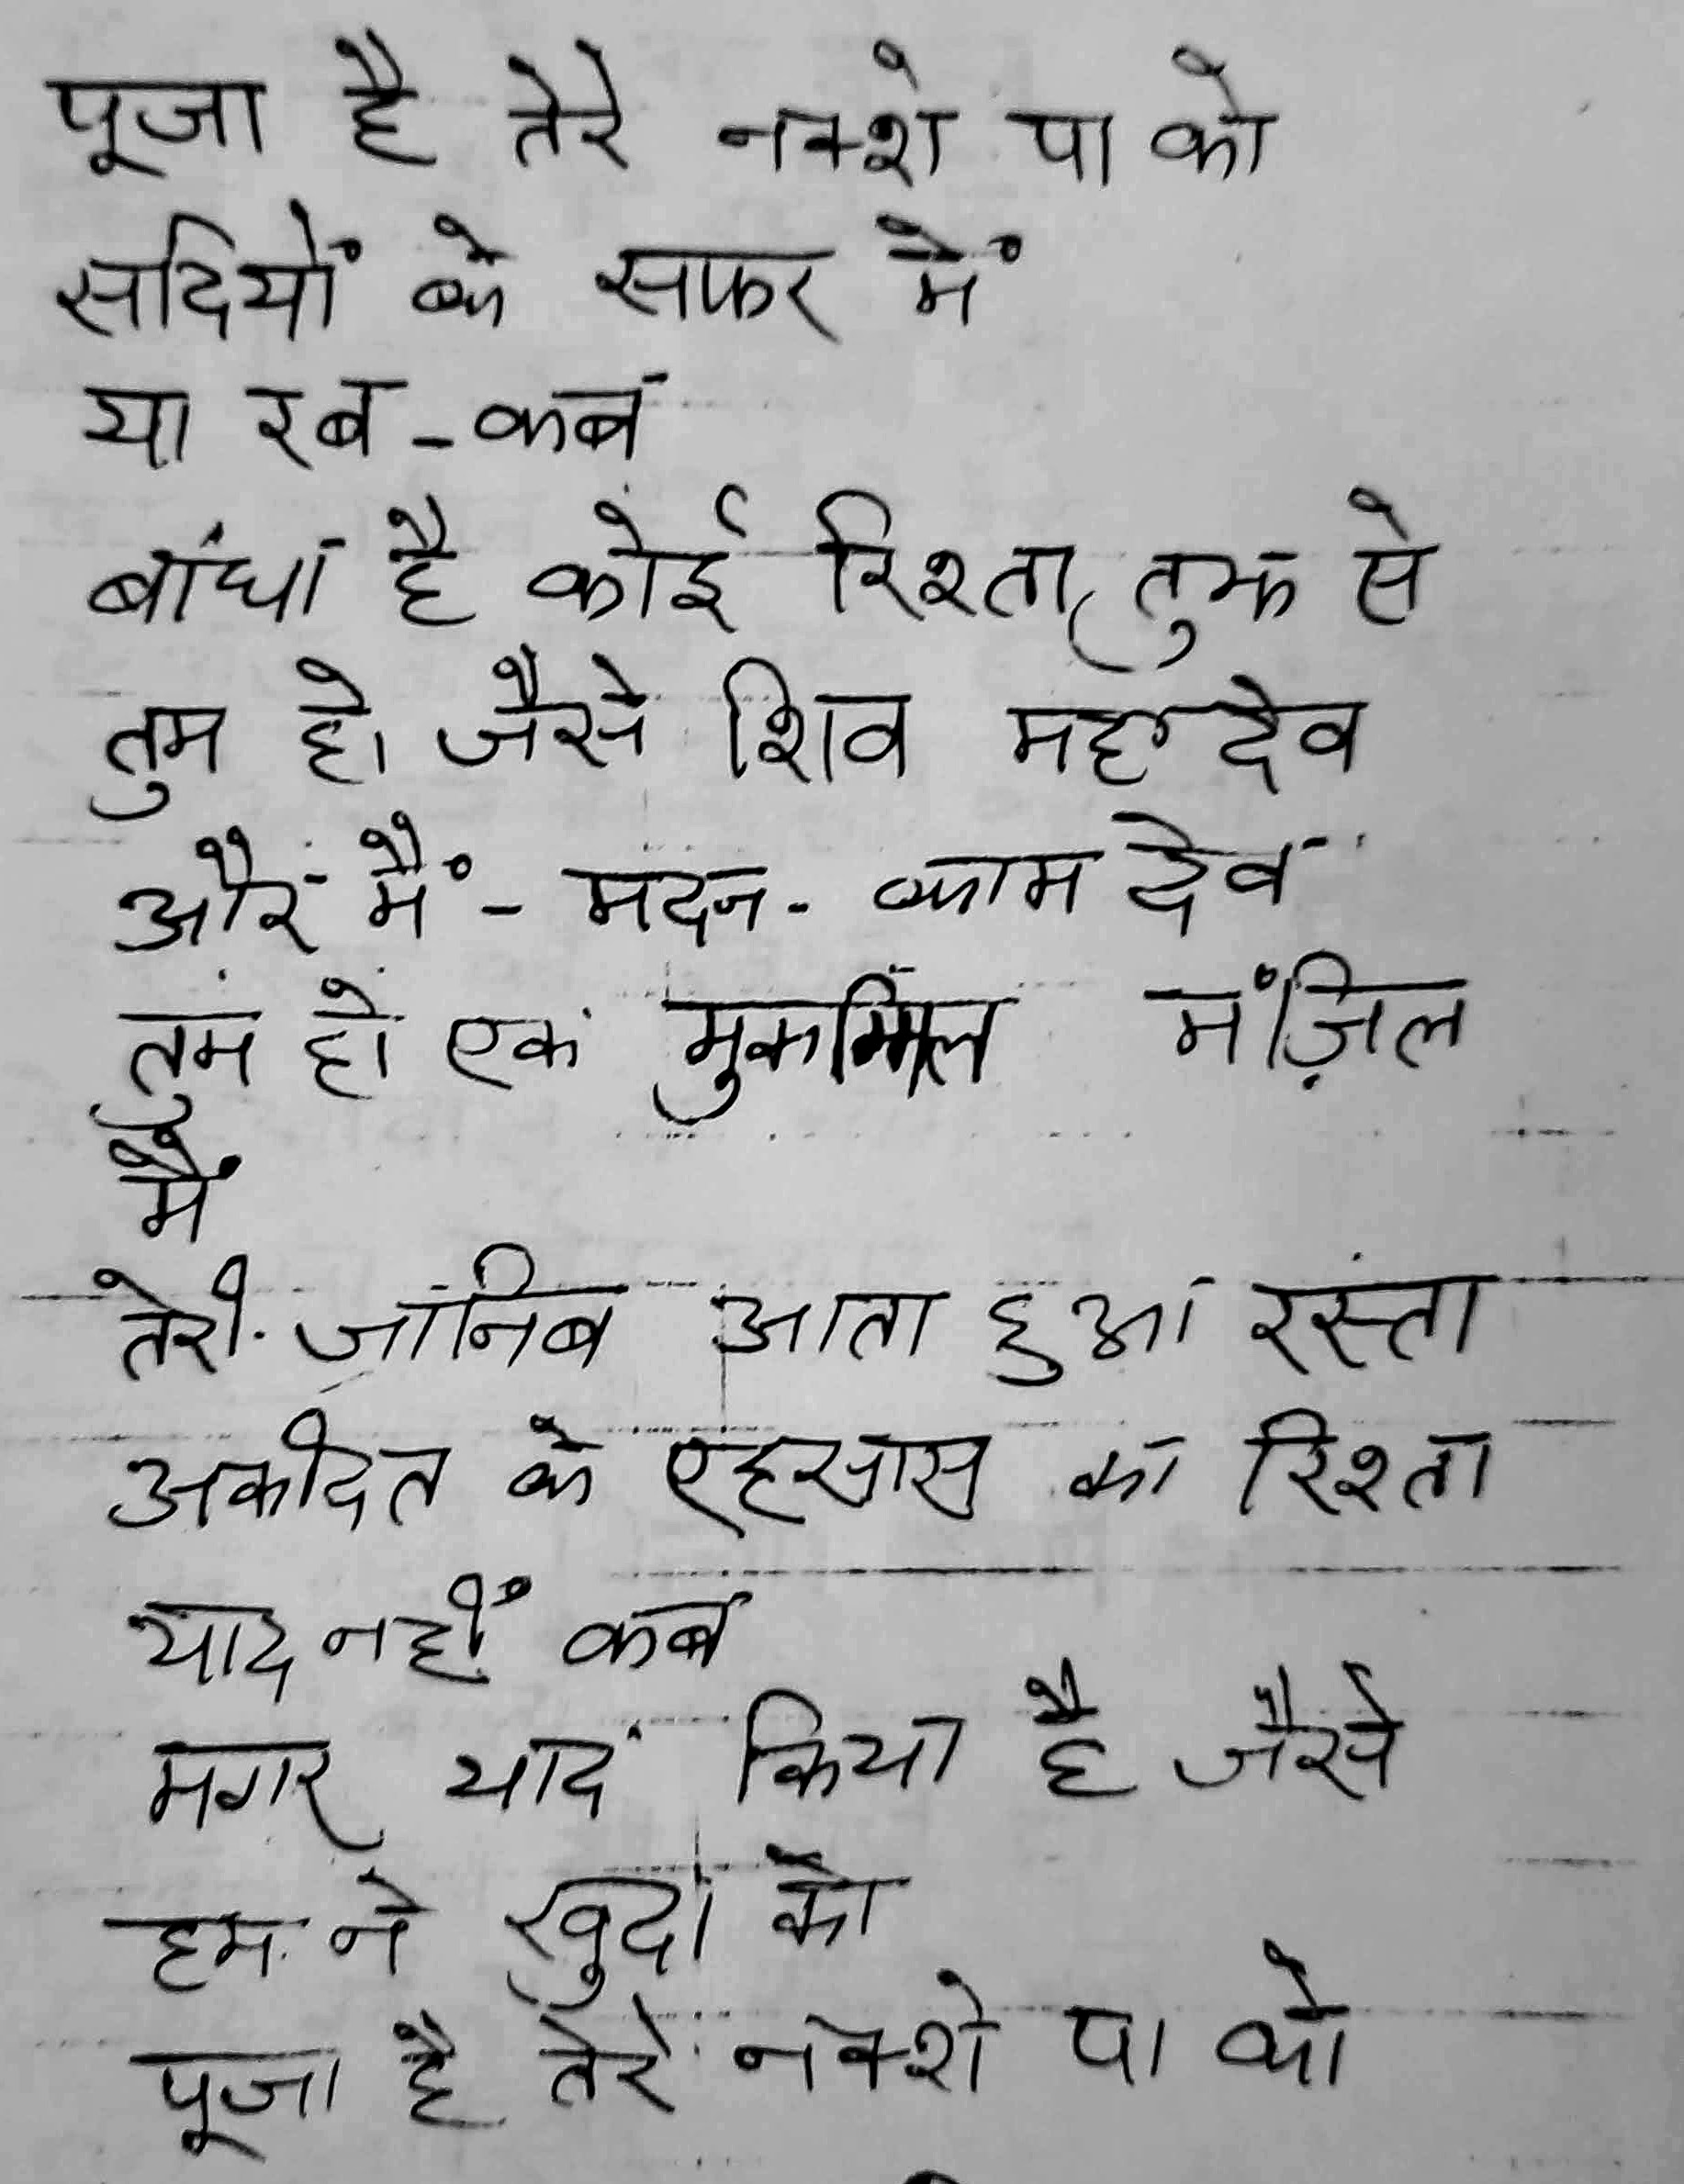 पूजा है तेरे नक्शे पा को
सदियों के सफर में
या रब - कब
बांधा है कोई रिश्ता तुझ से
तुम हो जैसे शिव महादेव
और मैं - मदन - काम देव
तुम हो एक मुकम्मिल मंज़िल
मैं
तेरी जानिब आता हुआ रस्ता
अकीदत के एहसास का रिश्ता
याद नहीं कब
मगर याद किया है जैसे
हम ने खुदा को
पूजा है तेरे नक्शे पा को